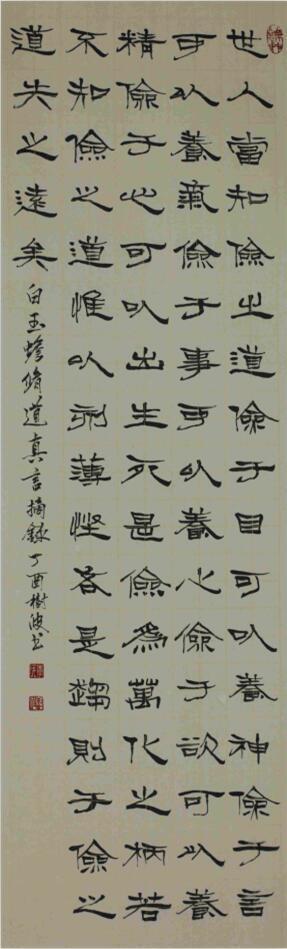 世人當知儉之道儉于目可以養神儉于言
可以養氣儉于事可以養心儉于欲可以養
精儉于心可以出生死是儉為萬化之柄若
不知儉之道惟以刻薄慳吝是趨則于儉之
道失之遠矣
白玉蟾脩道真言摘錄 丁酉樹波书